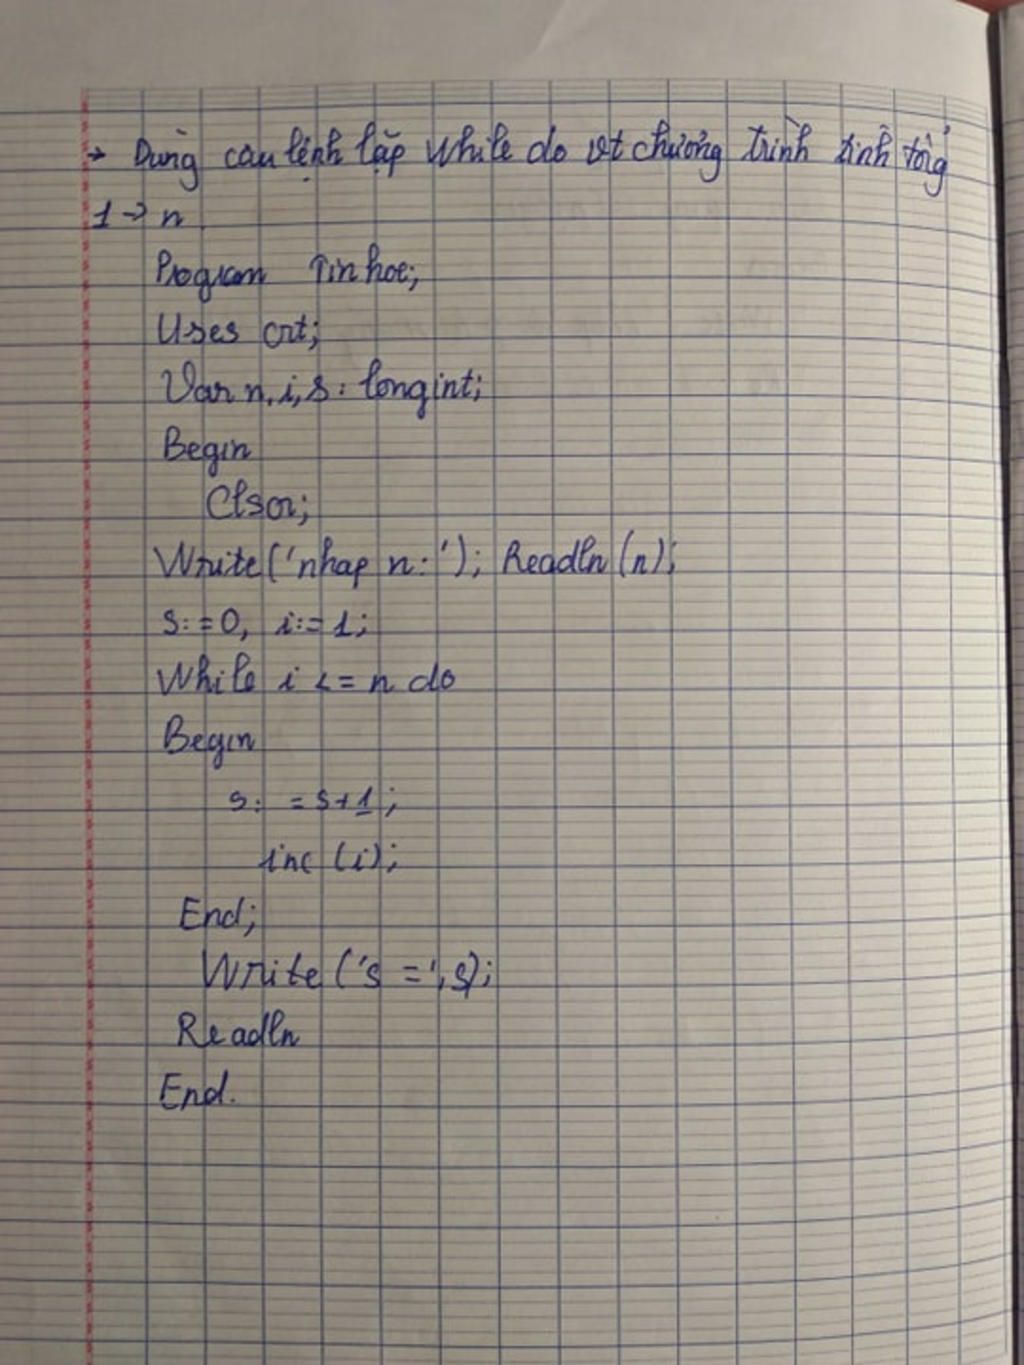 → Dùng câu lệnh lặp While do vt chương trình tính tổng
1 → n
Program Tinhoc;
Uses crt;
Var n, i, s : longint;
Begin
Clscr;
Write('nhap n: '); Readln (n);
s: = 0, i: = 1;
While i <= n do
Begin
s: = s+1;
inc (i);
End;
Write ('s =', s);
Readln
End.